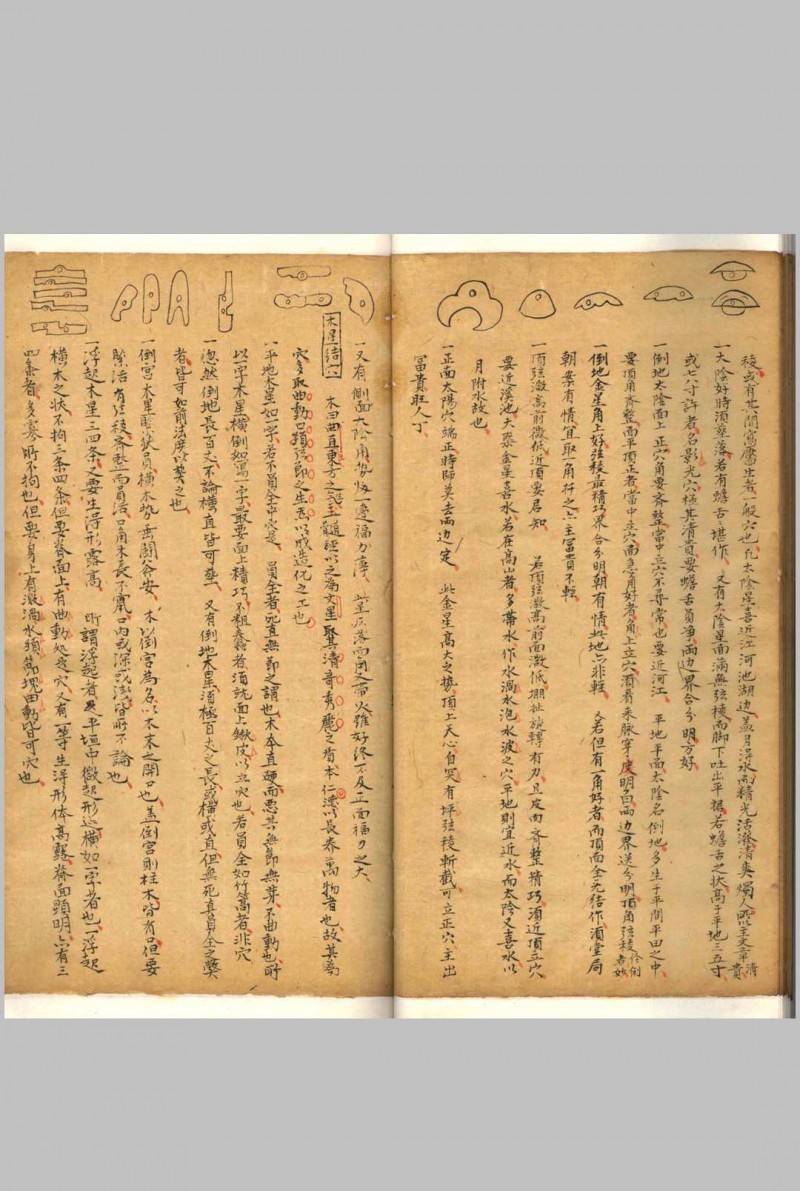 稜或有其間窩靨生者一般穴也凡太陰星喜近江河池湖边盖月浮水而精光活潑清爽燭人照主文章清貴
一太陰好時須垂落若有蟾舌舌堪作又有太陰星面滿無弦稜而脚下吐出平裀若蟾舌之状高于平地三五寸
或七八寸許者名影光穴極其清貴要蟾舌員净兩边界合分明方好
一倒地太陰面上正穴角要齊整當中立穴不尋常也要近河江 平地平面太陰名倒地多生于平間平田之中
要頂角齊整面平頂正者當中立穴面急角好者角上立穴須看来脉穿度明白兩边界送分明頂角弦稜伶俐者妙
一倒地金星角上好弦稜最精巧界合分明朝有情此地亦非輕 又若但有一角好者而頂面全无结作須堂局
朝案有情宜取一角扦之亦主富貴不輕
一頂弦微高前微低近頂要君知 若頂弦微高前面微低堋扯旋轉有力且皮肉齊整精巧須近頂立穴
要近溪池大泉金星喜水若在高山者多帶水作水渦水泡水波之穴平地則宜近水而太陰又喜水以
月附水故也
一正面太陽穴端正時師莫去兩边定 此金星高大之勢頂上天心自突有坪弦稜斬截可立正穴主出
富貴旺人丁
一又有側面太陰角勢极一邊福力薄 此星反落雖好終不及正面福力之大
木星结穴 木曰曲直東方之文星聚其清音秀麗之有本仁德以長养萬物者也故其為
穴多取曲動口類弦節之生氣以成造化之工也
一平地木星如一字若不員全中穴是 員全者死直無節之謂也木本直硬而悪其無節無芽不曲動也所
以一字木星橫倒如寫一字最要面上精巧不粗蠢者須就面上鍬皮以立穴也若員全如竹篙者非穴
一忽然倒地長百丈不論橫直皆可葬 又有倒地木星須極百丈之長或橫或直但無死直員全之獘
者皆可如前法度以葬之也
一倒宫木星 状員橫木勢垂關斧安 木以倒宫為名以木末之開口也盖倒宫則柱木皆有口但要
緊活有弦稜齊整而員活口角木長了口内或深或淺皆所不論也
一浮起木星三四条又要生得形露高 所謂浮起者是平垣中微起形迹橫如一字者也一浮起
橫木之状不拘三条四条但要脊面上有曲動处是穴又有一等生浮形体高露脊面顕明亦有三
四条者多寡所不拘也但要身上有微渦水須節塊曲動皆可穴也